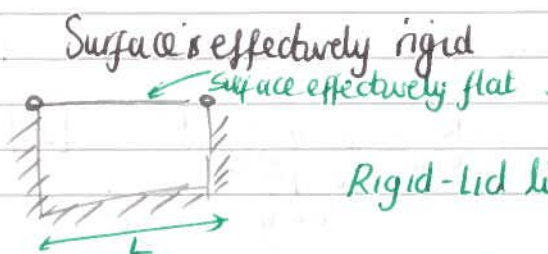 Surface is effectively rigid
surface effectively flat
Rigid-Lid
L